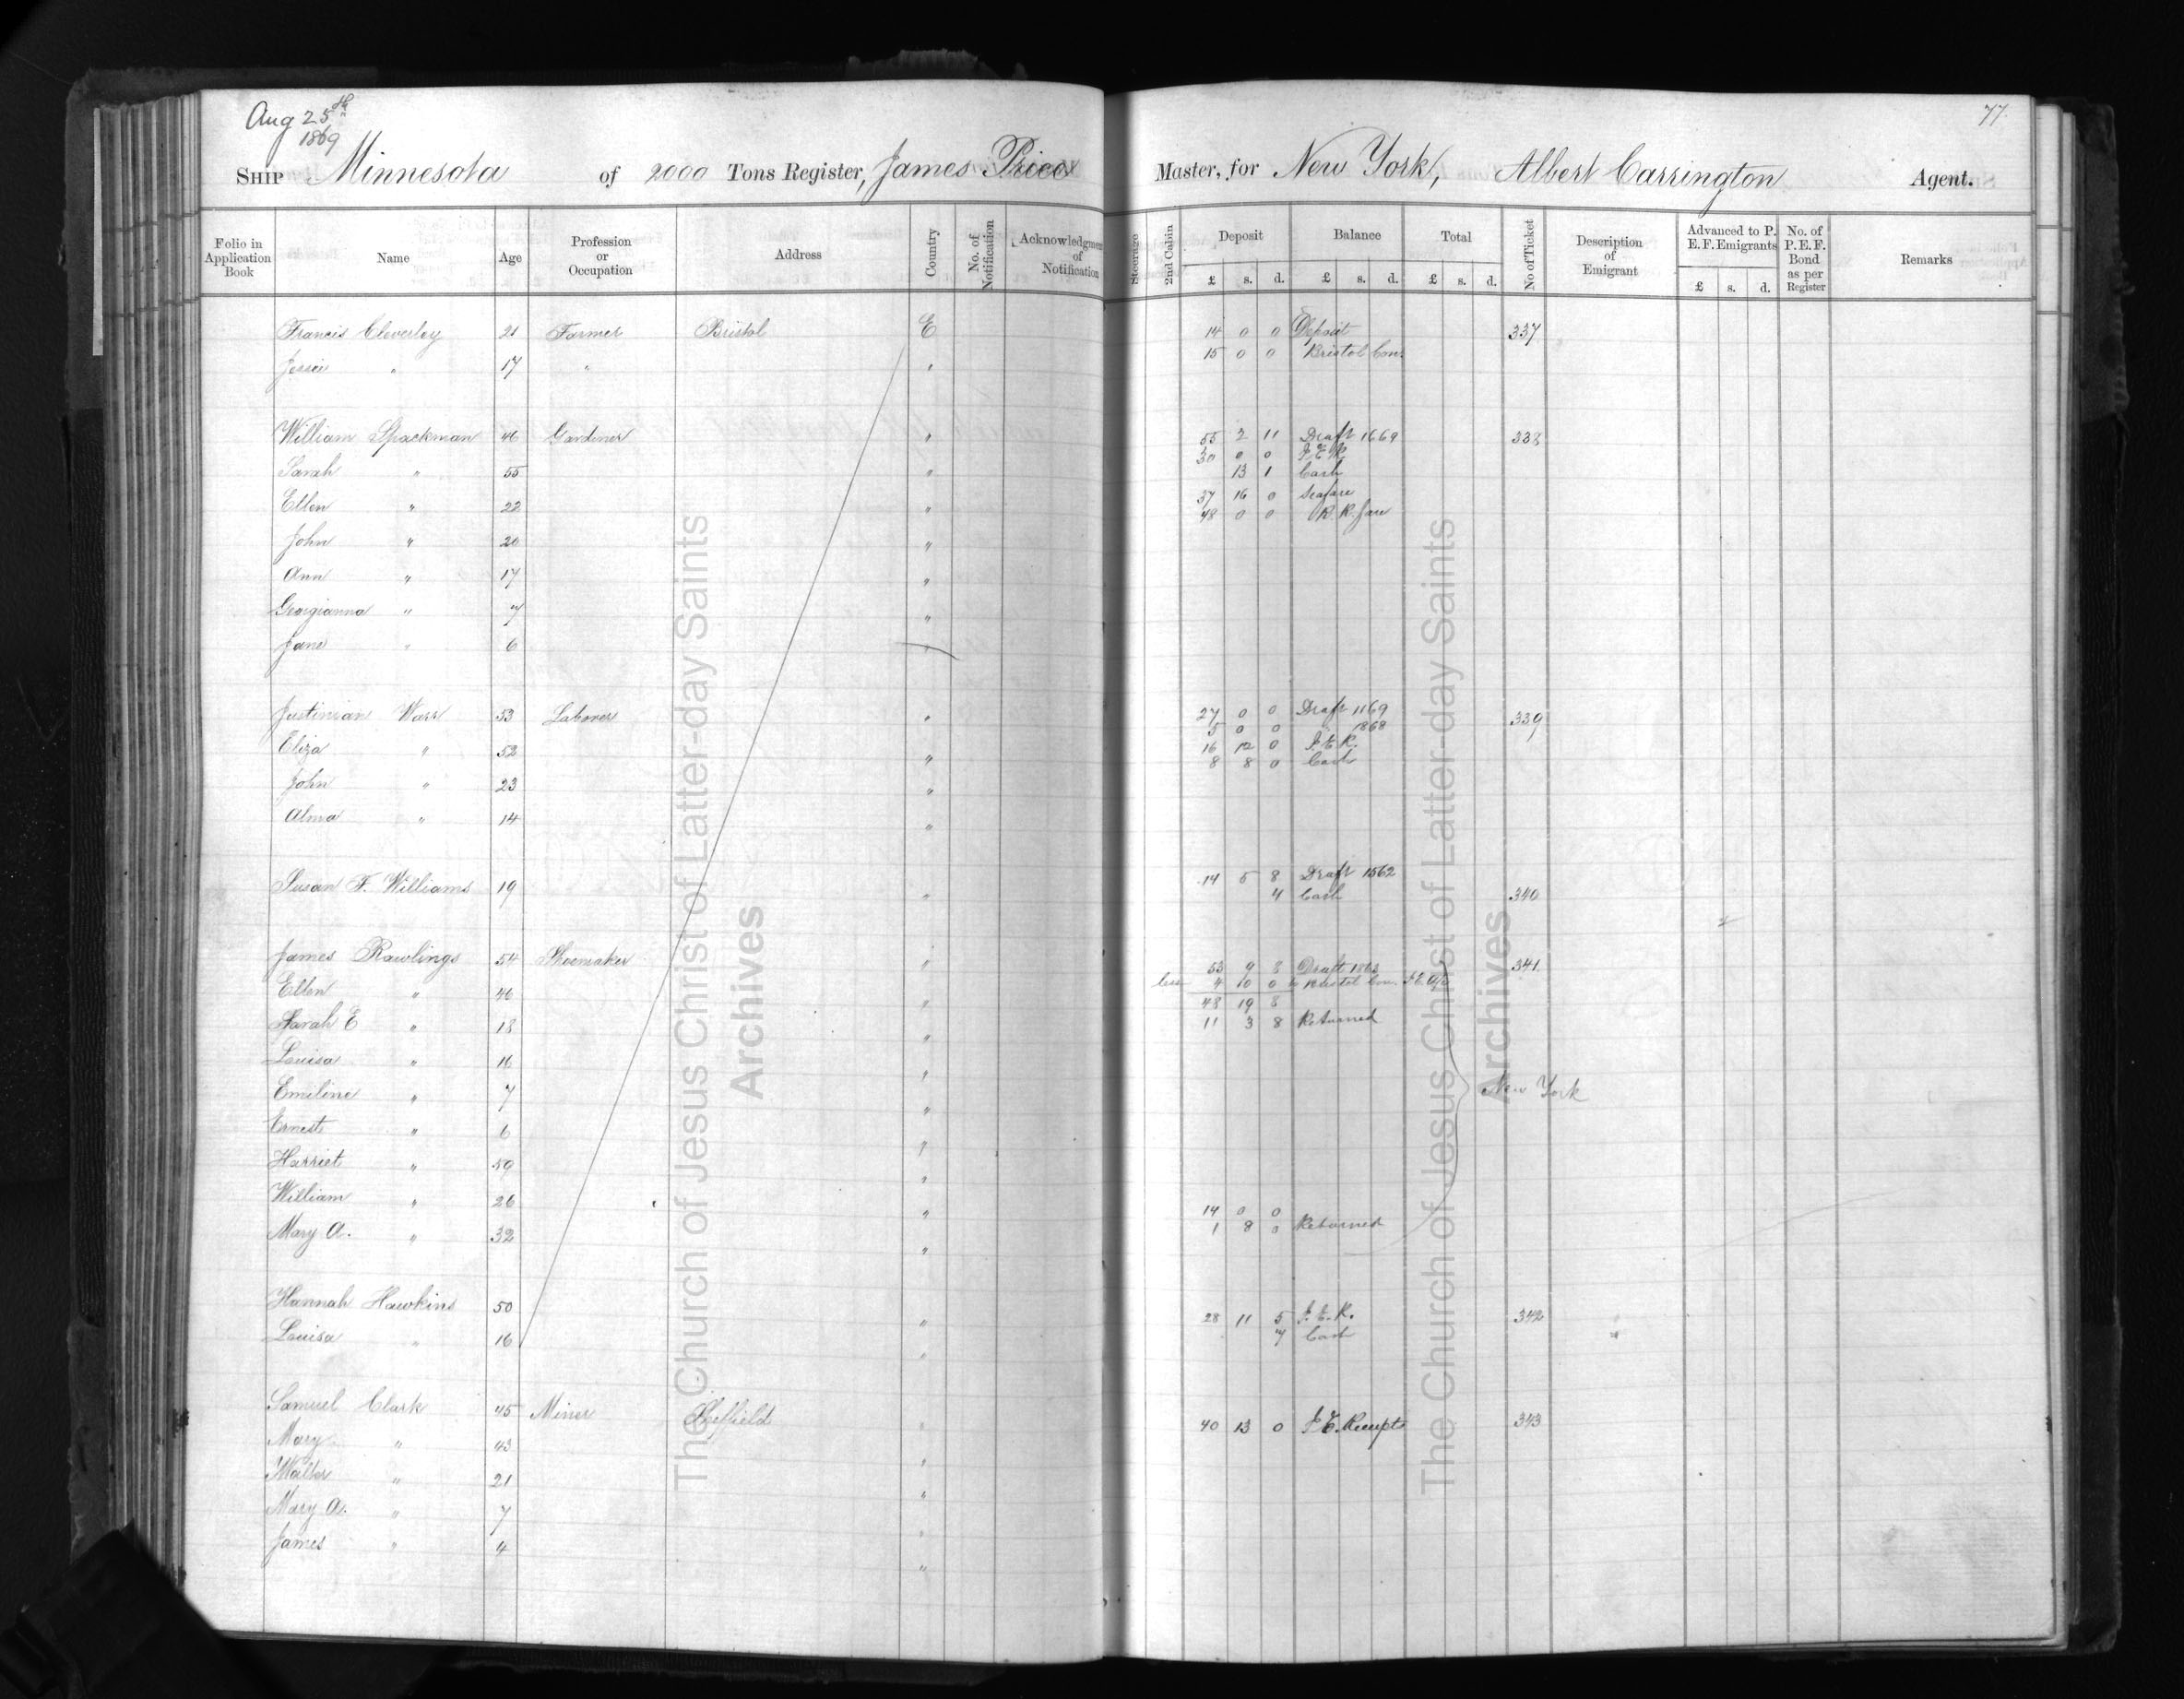 Aug 25th
1869
77
Ship Minnesota of 2000 Tons Register, James Price Master, for New York, Albert Carrington Agent.
Folio in Application Book | Name | Age | Profession or Occupation | Address | Country | No. of Notification | Acknowledgment of Notification | Steerage | 2nd Cabin | Deposit £ s. d. | Balance £ s. d. | Total £ s. d. | No of Ticket | Description of Emigrant | Advanced to P. E. F. Emigrants £ s. d. | No. of P. E. F. Bond as per Register | Remarks
Francis Cleverley 21 Farmer Bristol E 14 0 0 Deposit 337
15 0 0 Bristol Con.
Jessie " 17 " "
William Spackman 46 Gardiner " 55 2 11 Draft 1669 338
30 0 0 I E R
Sarah " 55 " 13 1 Cash
Ellen " 22 " 37 16 0 Seafare
48 0 0 R. R. fare
John " 20 "
Ann " 17 "
Georgianna " 7 "
Jane " 6 "
Justinian Warr 53 Laborer " 27 0 0 Draft 1169 339
5 0 0 " 1868
Eliza " 52 " 16 12 0 I. E R.
8 8 0 Cash
John " 23 "
Alma " 14 "
Susan F. Williams 19 " 14 5 8 Draft 1562 340
4 Cash
James Rawlings 54 Shoemaker " 53 9 8 Draft 1863 341
Ellen " 46 " less 4 10 0 to Bristol Con. I E a/c
48 19 8
Sarah E " 18 " 11 3 8 Returned
Louisa " 16 "
Emiline " 7 " New York
Ernest " 6 "
Harriet " 59 "
William " 26 " 14 0 0
Mary A. " 32 " 1 8 0 Returned
Hannah Hawkins 50 " 28 11 5 I. E. R. 342
Louisa " 16 " 7 Cash
Samuel Clark 45 Miner Sheffield " 40 13 0 I E. Receipts 343
Mary " 43 "
Walter " 21 "
Mary A. " 7 "
James " 4 "
The Church of Jesus Christ of Latter-day Saints
Archives
The Church of Jesus Christ of Latter-day Saints
Archives